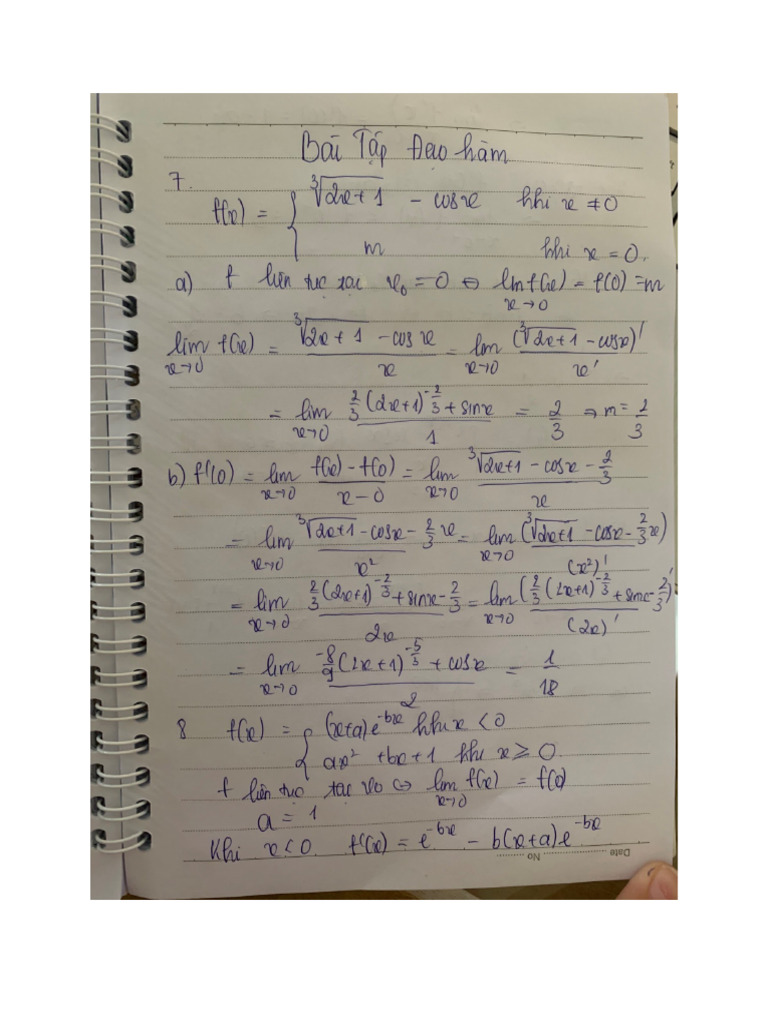 Bài Tập Đạo hàm
7.
f(x) = { ∛(2x+1) - cosx khi x ≠ 0
m khi x = 0.
a) f liên tục tại x₀ = 0 ⇔ lim f(x) = f(0) = m
x→0
lim f(x) = (∛(2x+1) - cos x)/x = lim (∛(2x+1) - cosx)'/x'
x→0 x→0
= lim (2/3 (2x+1)^(-2/3) + sinx)/1 = 2/3 ⇒ m = 2/3
x→0
b) f'(0) = lim (f(x) - f(0))/(x - 0) = lim (∛(2x+1) - cosx - 2/3)/x
x→0 x→0
= lim (∛(2x+1) - cosx - 2/3 x)/x² = lim (∛(2x+1) - cosx - 2/3 x)'/(x²)'
x→0 x→0
= lim (2/3 (2x+1)^(-2/3) + sinx - 2/3)/2x = lim (2/3 (2x+1)^(-2/3) + sinx - 2/3)'/(2x)'
x→0 x→0
= lim (-8/9 (2x+1)^(-5/3) + cosx)/2 = 1/18
x→0
8 f(x) = { (x+a)e^(-bx) khi x < 0
ax² + bx + 1 khi x ≥ 0.
f liên tục tại x₀ ⇔ lim f(x) = f(0)
x→0
a = 1
Khi x < 0. f'(x) = e^(-bx) - b(x+a)e^(-bx)
Date No